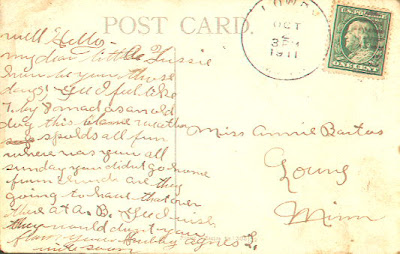 POST CARD.
LOWRY
OCT
3 PM
1911
well Hello
my dear little Tussie
how be you these
days. Gee I feel like
I by Jomad as an old
dog this blame weather
spoilds all fun
where was you all
sunday you didnt go home
from church are they
going to haut that over
there at A. B. Gee I wish
they would dont you
from your hubby Agnes L.
write soon
Miss Annie Bartos
Lowry
Minn